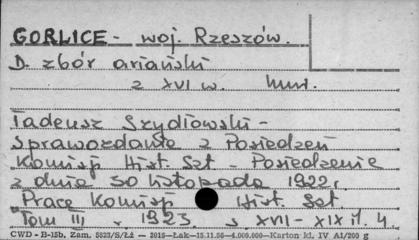 GORLICE - woj. Rzeszów.
D. zbór ariański
z XVI w. mur.
Tadeusz Szydłowski -
Sprawozdanie z Posiedzeń
Komisji Hist. Szt - Posiedzenie
z dnia 30 listopada 1922 r.
Prace Komisji Hist. Szt
Tom III, 1923 s XVII - XIX il. 4.
CWD - B-15b, Zam. 5823/S/Łż — 2015—Łak—15.11.56—4.000.000—Karton kl. IV A1/200 g